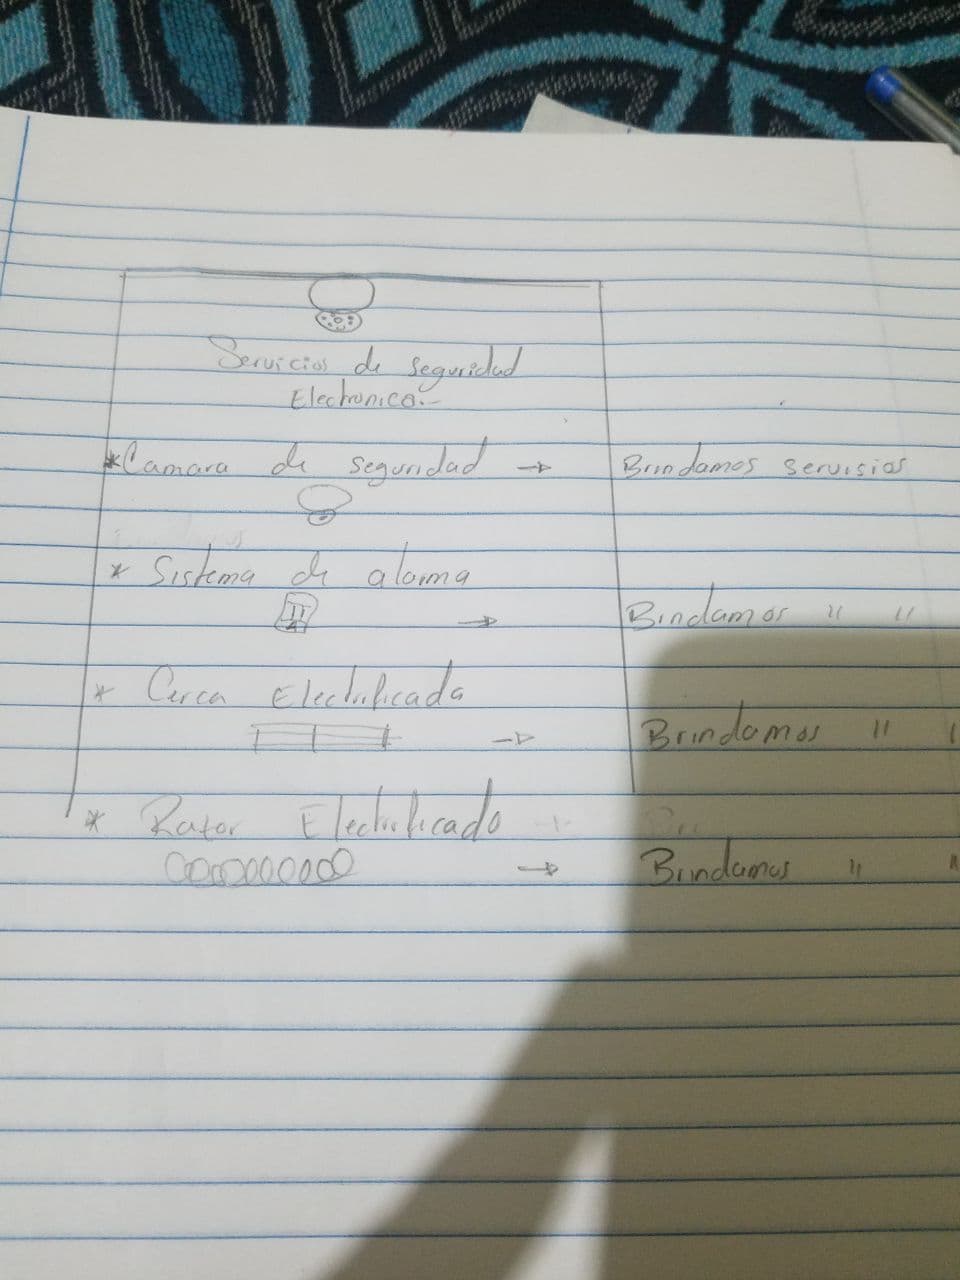 Servicios de seguridad
Electronica.-
*Camara de seguridad → Brindamos servisios
* Sistema de alarma
→ Bindamos " "
* Cerca Electrificada
→ Brindamos "
* Rator Electrificado
→ Brindamos " "